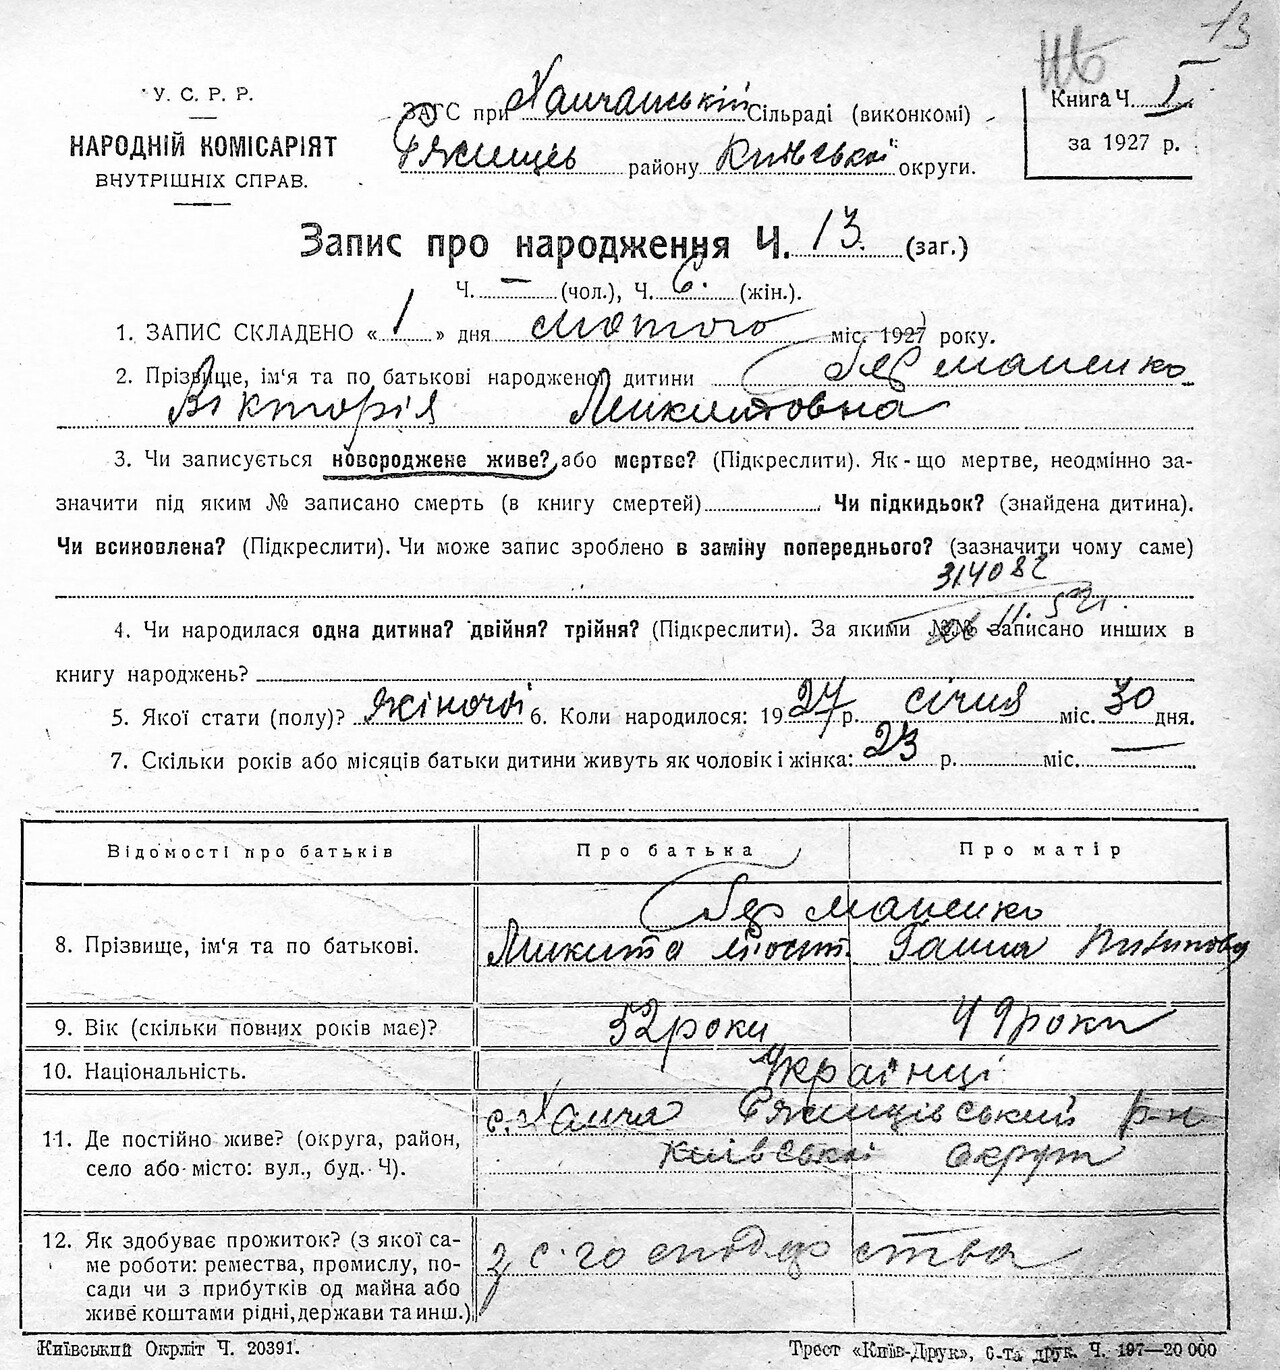 13
У. С. Р. Р.
НАРОДНІЙ КОМІСАРІЯТ
ВНУТРІШНІХ СПРАВ.
ЗАГС при Ханчанській Сільраді (виконкомі)
Ржищів району Київської округи.
Книга Ч. I
за 1927 р.
Запис про народження Ч. 13. (заг.)
Ч. — (чол.), Ч. 6. (жін.).
1. ЗАПИС СКЛАДЕНО «1» дня лютого міс. 1927 року.
2. Прізвище, ім'я та по батькові народженої дитини Германенко
Вікторія Микитовна
3. Чи записується новороджене живе? або мертве? (Підкреслити). Як-що мертве, неодмінно за-
значити під яким № записано смерть (в книгу смертей) Чи підкидьок? (знайдена дитина).
Чи всиновлена? (Підкреслити). Чи може запис зроблено в заміну попереднього? (зазначити чому саме)
314082
4. Чи народилася одна дитина? двійня? трійня? (Підкреслити). За якими №№ записано инших в
книгу народжень?
5. Якої стати (полу)? жіночої 6. Коли народилося: 1927 р. січня міс. 30 дня.
7. Скільки років або місяців батьки дитини живуть як чоловік і жінка: 23 р. міс. —
Відомості про батьків Про батька Про матір
Германенко
8. Прізвище, ім'я та по батькові. Микита Ганна
9. Вік (скільки повних років має)? 52 роки 49 роки
10. Національність. Українці
11. Де постійно живе? (округа, район, с. Ханча Ржищівський р-н
село або місто: вул., буд. Ч). Київської округи
12. Як здобуває прожиток? (з якої са- з с. господарства
ме роботи: ремества, промислу, по-
сади чи з прибутків од майна або
живе коштами рідні, держави та инш.)
Київський Окрліт Ч. 20391.
Трест «Київ-Друк», 6-та друк. Ч. 197—20 000